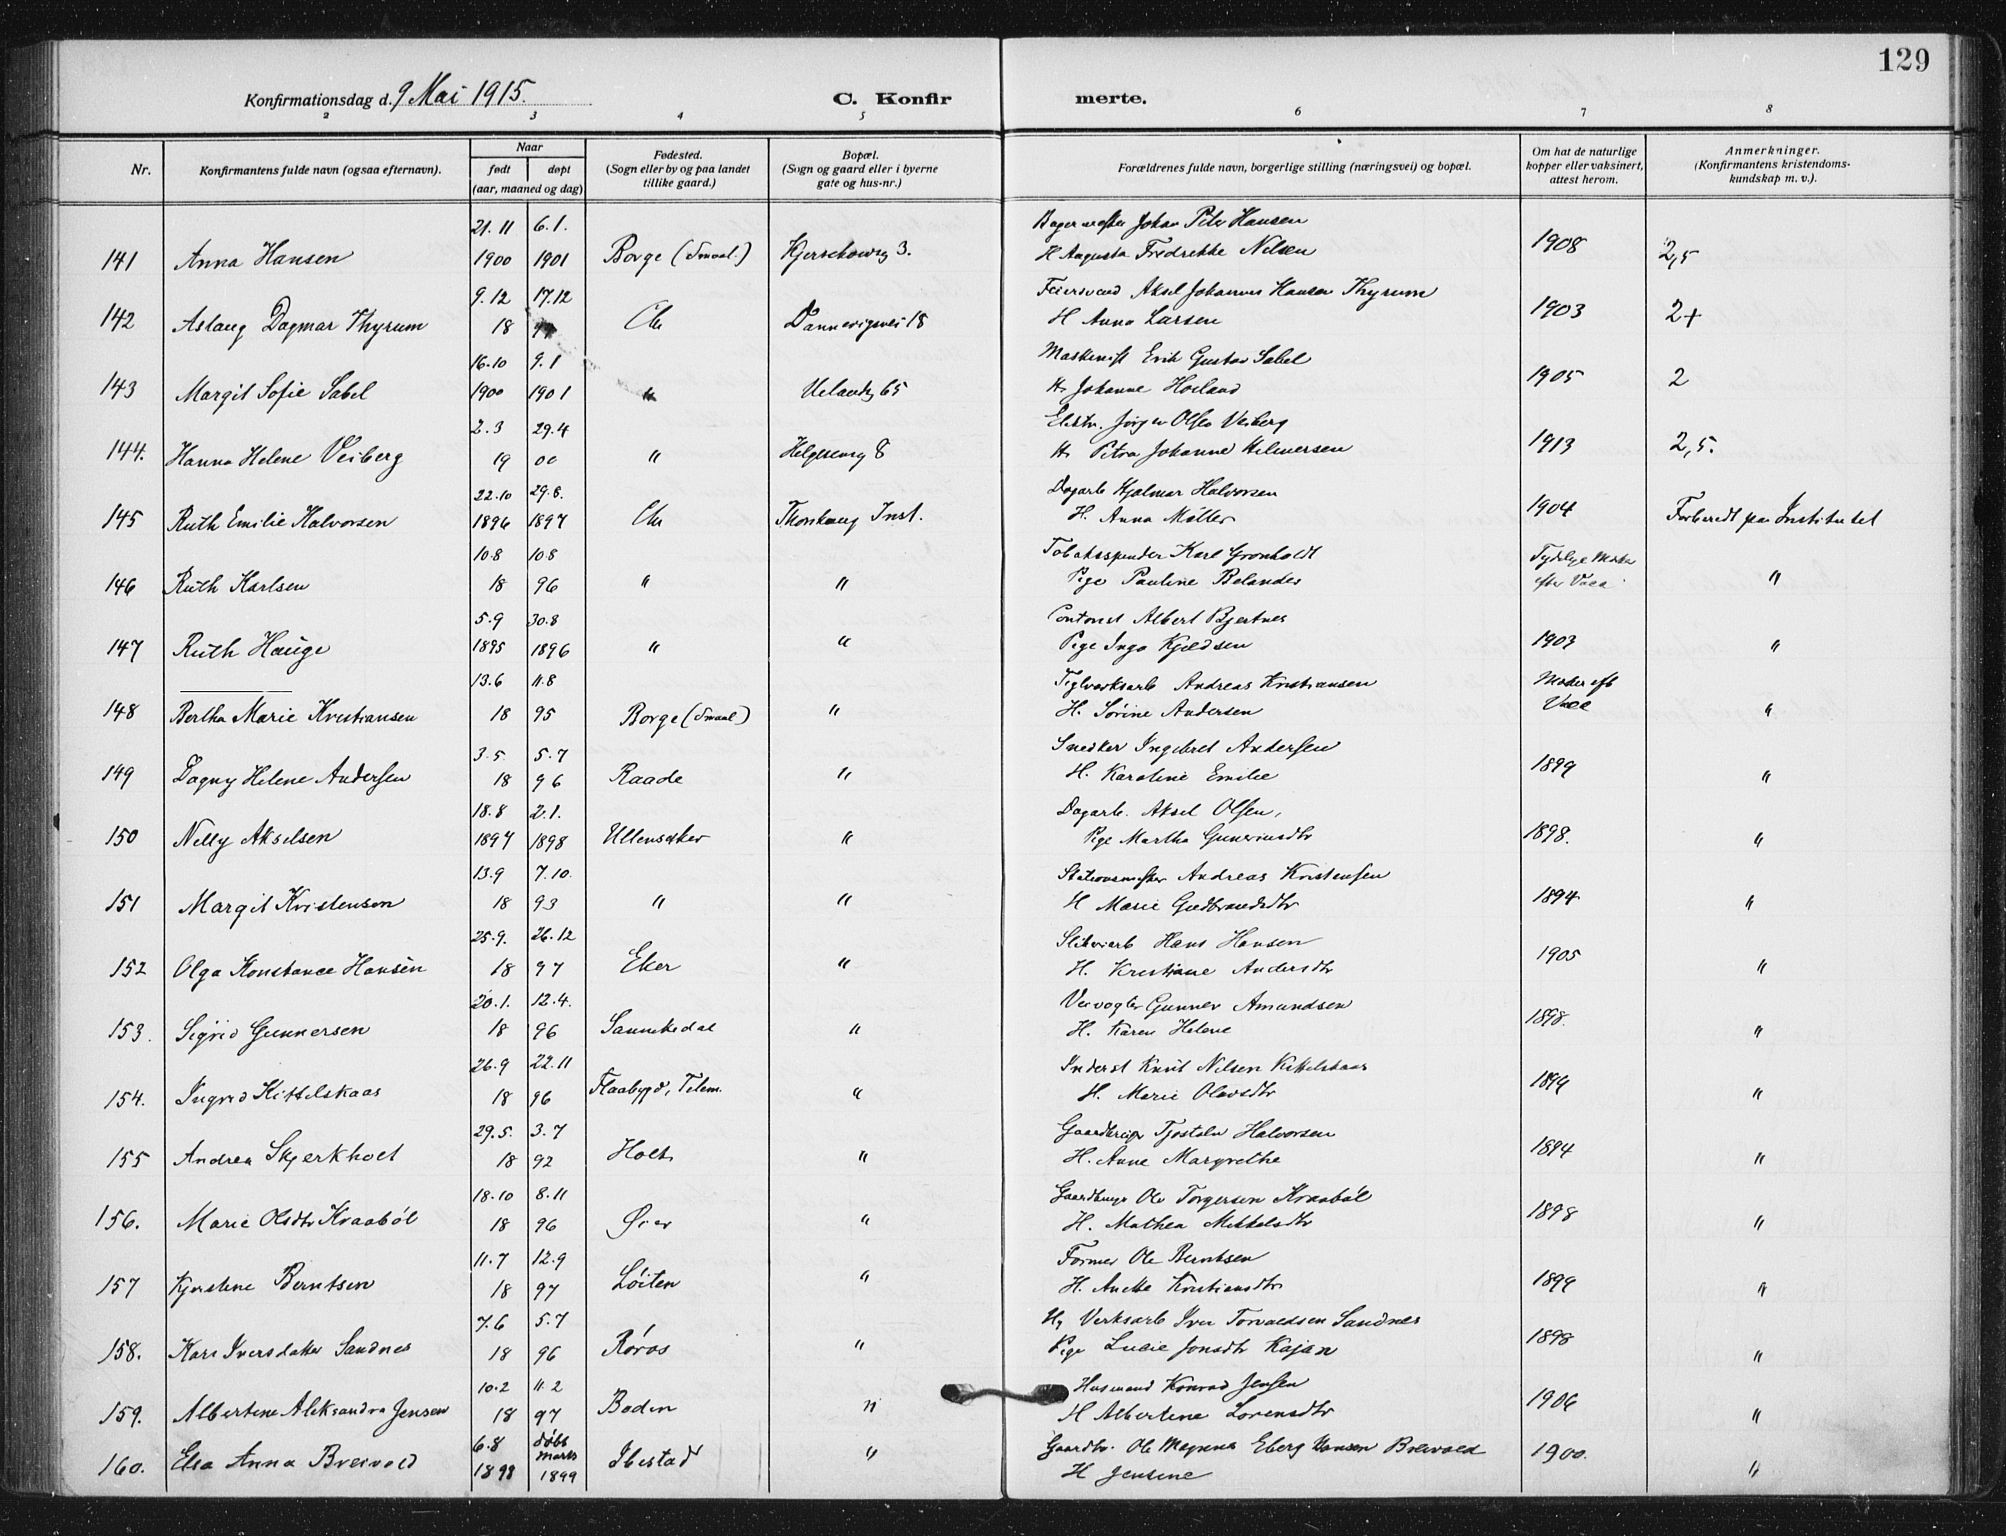 129
Konfirmationsdag d. 9 Mai 1915.
C. Konfirmerte.
2 3 4 5 6 7 8
Nr. Konfirmantens fulde navn (ogsaa efternavn). Naar født døpt (aar, maaned og dag) Fødested. (Sogn eller by og paa landet tillike gaard.) Bopæl. (Sogn og gaard eller i byerne gate og hus-nr.) Forældrenes fulde navn, borgerlige stilling (næringsvei) og bopæl. Om hat de naturlige kopper eller vaksinert, attest herom. Anmerkninger. (Konfirmantens kristendomskundskap m. v.).
21.11 6.1. Johan Peter Hansen
141 Anna Hansen 1900 1901 Borge (Smaal.) 3. H Augusta Fredrikke Nilsen 1908 2,5
9.12 17.12 Feiersvend Aksel Johannes Hansen Thyrum
142 Aslaug Dagmar Thyrum 18 99 Chr Dannevigsvei 18 H Anna Larsen 1903 2+
16.10 9.1 Maskinist Erik Gustav Sabel
143 Margit Sofie Sabel 1900 1901 " Uelandsg 65 H. Johanne Hoeland 1905 2
2.3 29.4 Elektr. Jørgen Olsen Veiberg
144. Hanna Helene Veiberg 19 00 " Helgesensg 8 H. Petra Johanne Hilmersen 1913 2,5.
22.10 29.8. Dagarb Hjalmar Halvorsen
145 Ruth Emilie Halvorsen 1896 1897 Chr Thorshaug Inst. H. Anna Møller 1904 Forberedt paa Institutet
10.8 10.8 Tobakspinder Karl Grønholdt Tydelige Merker
146 Ruth Karlsen 18 96 " " Pige Pauline Belander efter Vacc "
5.9 30.8 Contorist Albert Bjertnes
147 Ruth Hauge 1895 1896 " " Pige Inga Kjeldsen 1903 "
13.6 11.8 Teglverksarb Andreas Kristiansen Merker eft
148 Bertha Marie Kristiansen 18 95 Borge (Smaal) " H. Sørine Andersen Vacc "
3.5 5.7 Snedker Ingebret Andersen
149 Dagny Helene Andersen 18 96 Raade " H. Karoline Emilie 1899 "
18.8 2.1. Dagarb. Aksel Olsen,
150 Nelly Akselsen 1897 1898 Ullensaker " Pige Martha Guneriusdtr 1898. "
13.9 7.10. Stationsmester Andreas Kristensen
151 Margit Kristensen 18 93 " " H Marie Gudbrandsdtr 1894 "
25.9. 26.12 Sliberiarb Hans Hansen
152 Olga Konstance Hansen 18 97 Eker " H. Kristiane Andersdtr 1905 "
20.1. 12.4. Veivogter Gunner Amundsen
153. Sigrid Gunnersen 18 96 Sannikedal " H. Karen Helene 1898. "
26.9 22.11 Inderst Knut Nilsen Kittelskaas
154. Ingrid Kittelskaas 18 96 Flaabygd, Telem. " H. Marie Olavsdtr 1899 "
29.5. 3.7 Gaardbruger Tjostolv Halvorsen
155 Andrea Skjerkholt 18 92 Holt " H. Anne Margrethe 1894 "
18.10 8.11 Gaardbruger Ole Torgersen Kraabøl
156. Marie Olsdtr Kraabøl 18 96 Øier " H. Mathea Mikkelsdtr 1898 "
11.7 12.9 Former Ole Berntsen
157 Kjerstine Berntsen 18 97 Løiten " H. Anette Kristiansdtr 1899 "
7.6 5.7 Verksarb Iver Torvaldsen Sandnes
158. Kari Iversdatter Sandnes 18 96 Røros " Pige Lucie Jonsdtr Kajan 1898 "
10.2 11.2 Husmand Konrad Jensen
159. Albertine Aleksandra Jensen 18 97 Bodin " H Albertine Lorensdtr 1906 "
6.8 døbt marts Gaardbr. Ole Magnus Eberg Hansen Breivold
160. Elsa Anna Breivold 1898 1899 Ibestad " H Jensine 1900. "